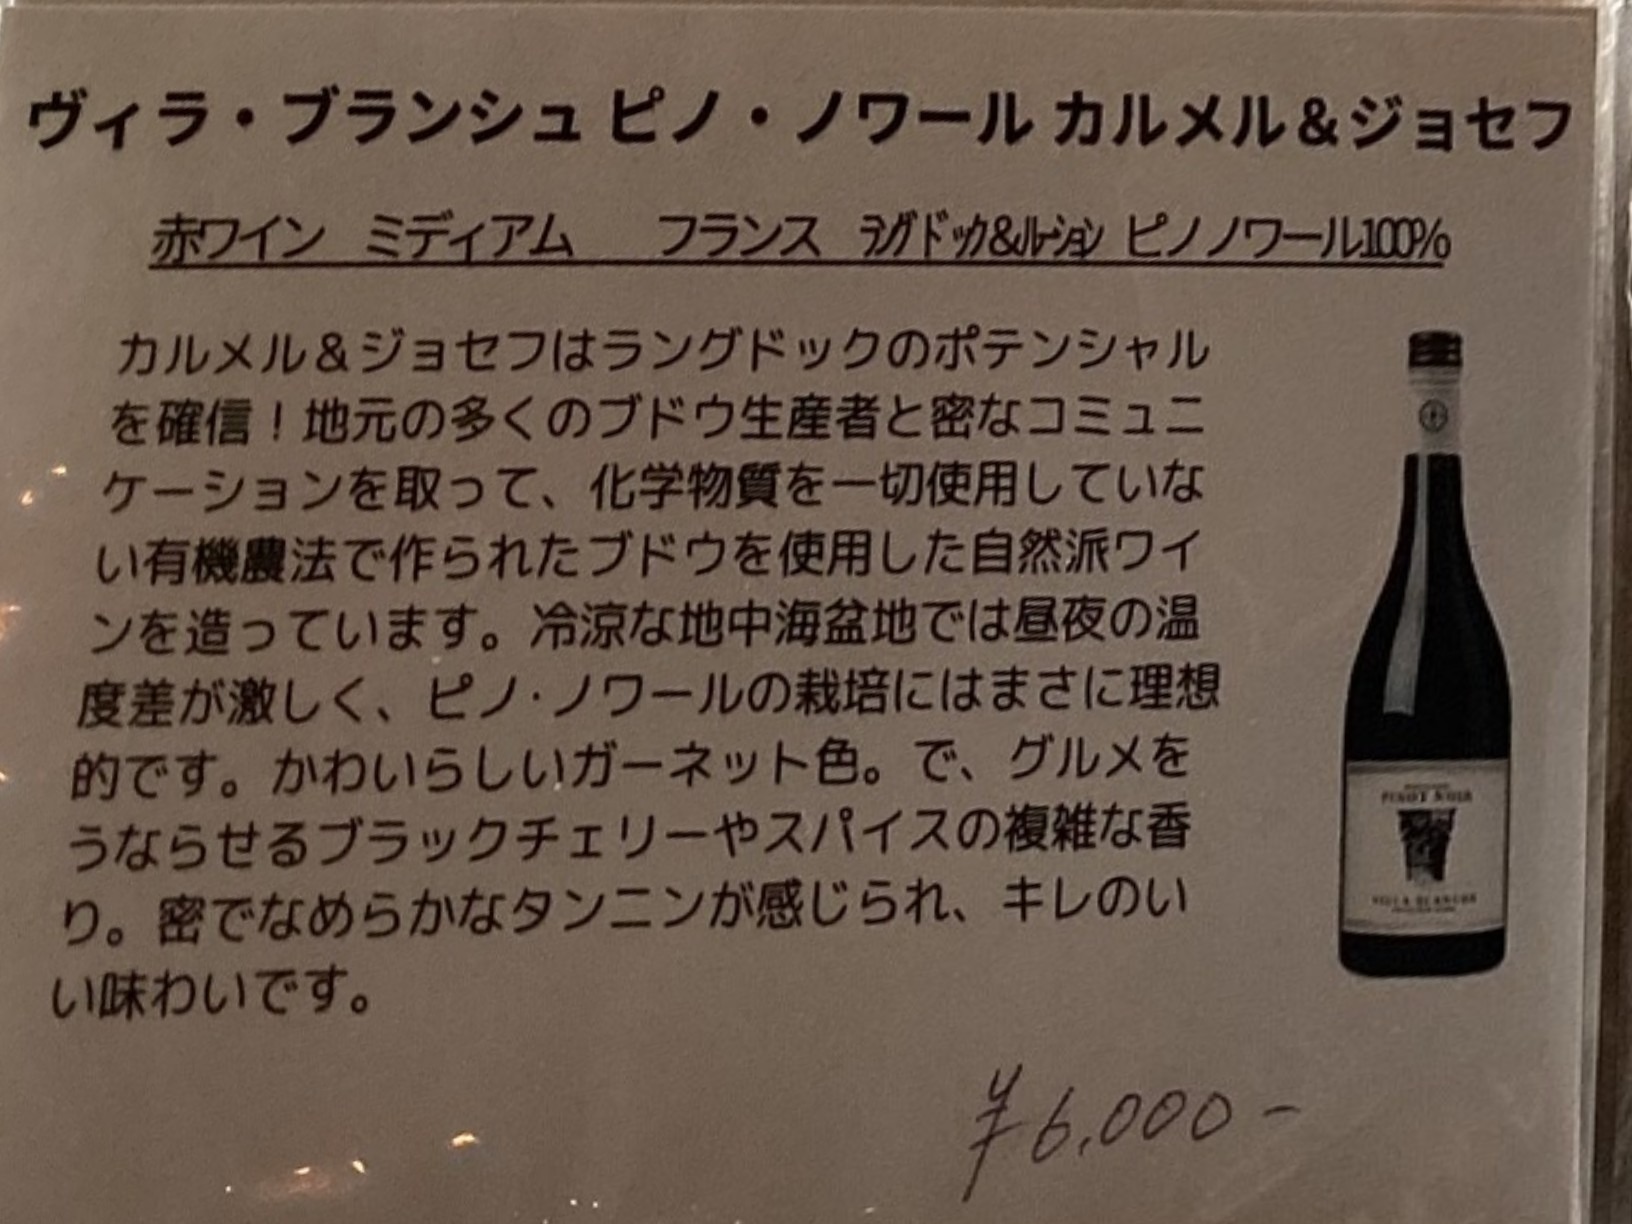 ヴィラ・ブランシュ ピノ・ノワール カルメル＆ジョセフ
赤ワイン ミディアム フランス ﾗﾝｸﾞﾄﾞｯｸ&ﾙｰｼｮﾝ ピノノワール100%
カルメル＆ジョセフはラングドックのポテンシャル
を確信！地元の多くのブドウ生産者と密なコミュニ
ケーションを取って、化学物質を一切使用していな
い有機農法で作られたブドウを使用した自然派ワイ
ンを造っています。冷涼な地中海盆地では昼夜の温
度差が激しく、ピノ·ノワールの栽培にはまさに理想
的です。かわいらしいガーネット色。で、グルメを
うならせるブラックチェリーやスパイスの複雑な香
り。密でなめらかなタンニンが感じられ、キレのい
い味わいです。
PINOT NOIR
VILLA BLANCHE
¥6,000-